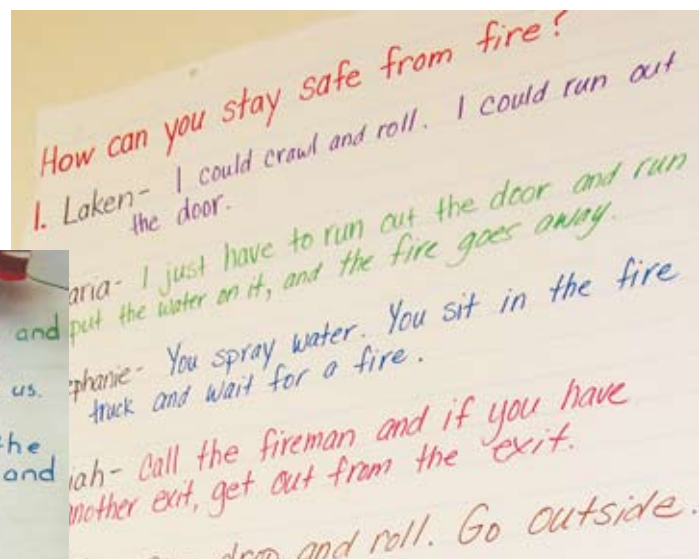 How can you stay safe from fire?
1. Laken- I could crawl and roll. I could run out
the door.
aria- I just have to run out the door and run
and put the water on it, and the fire goes away.
phanie- You spray water. You sit in the fire
us.
truck and wait for a fire.
the
and
iah- Call the fireman and if you have
another exit, get out from the exit.
drop and roll. Go outside.